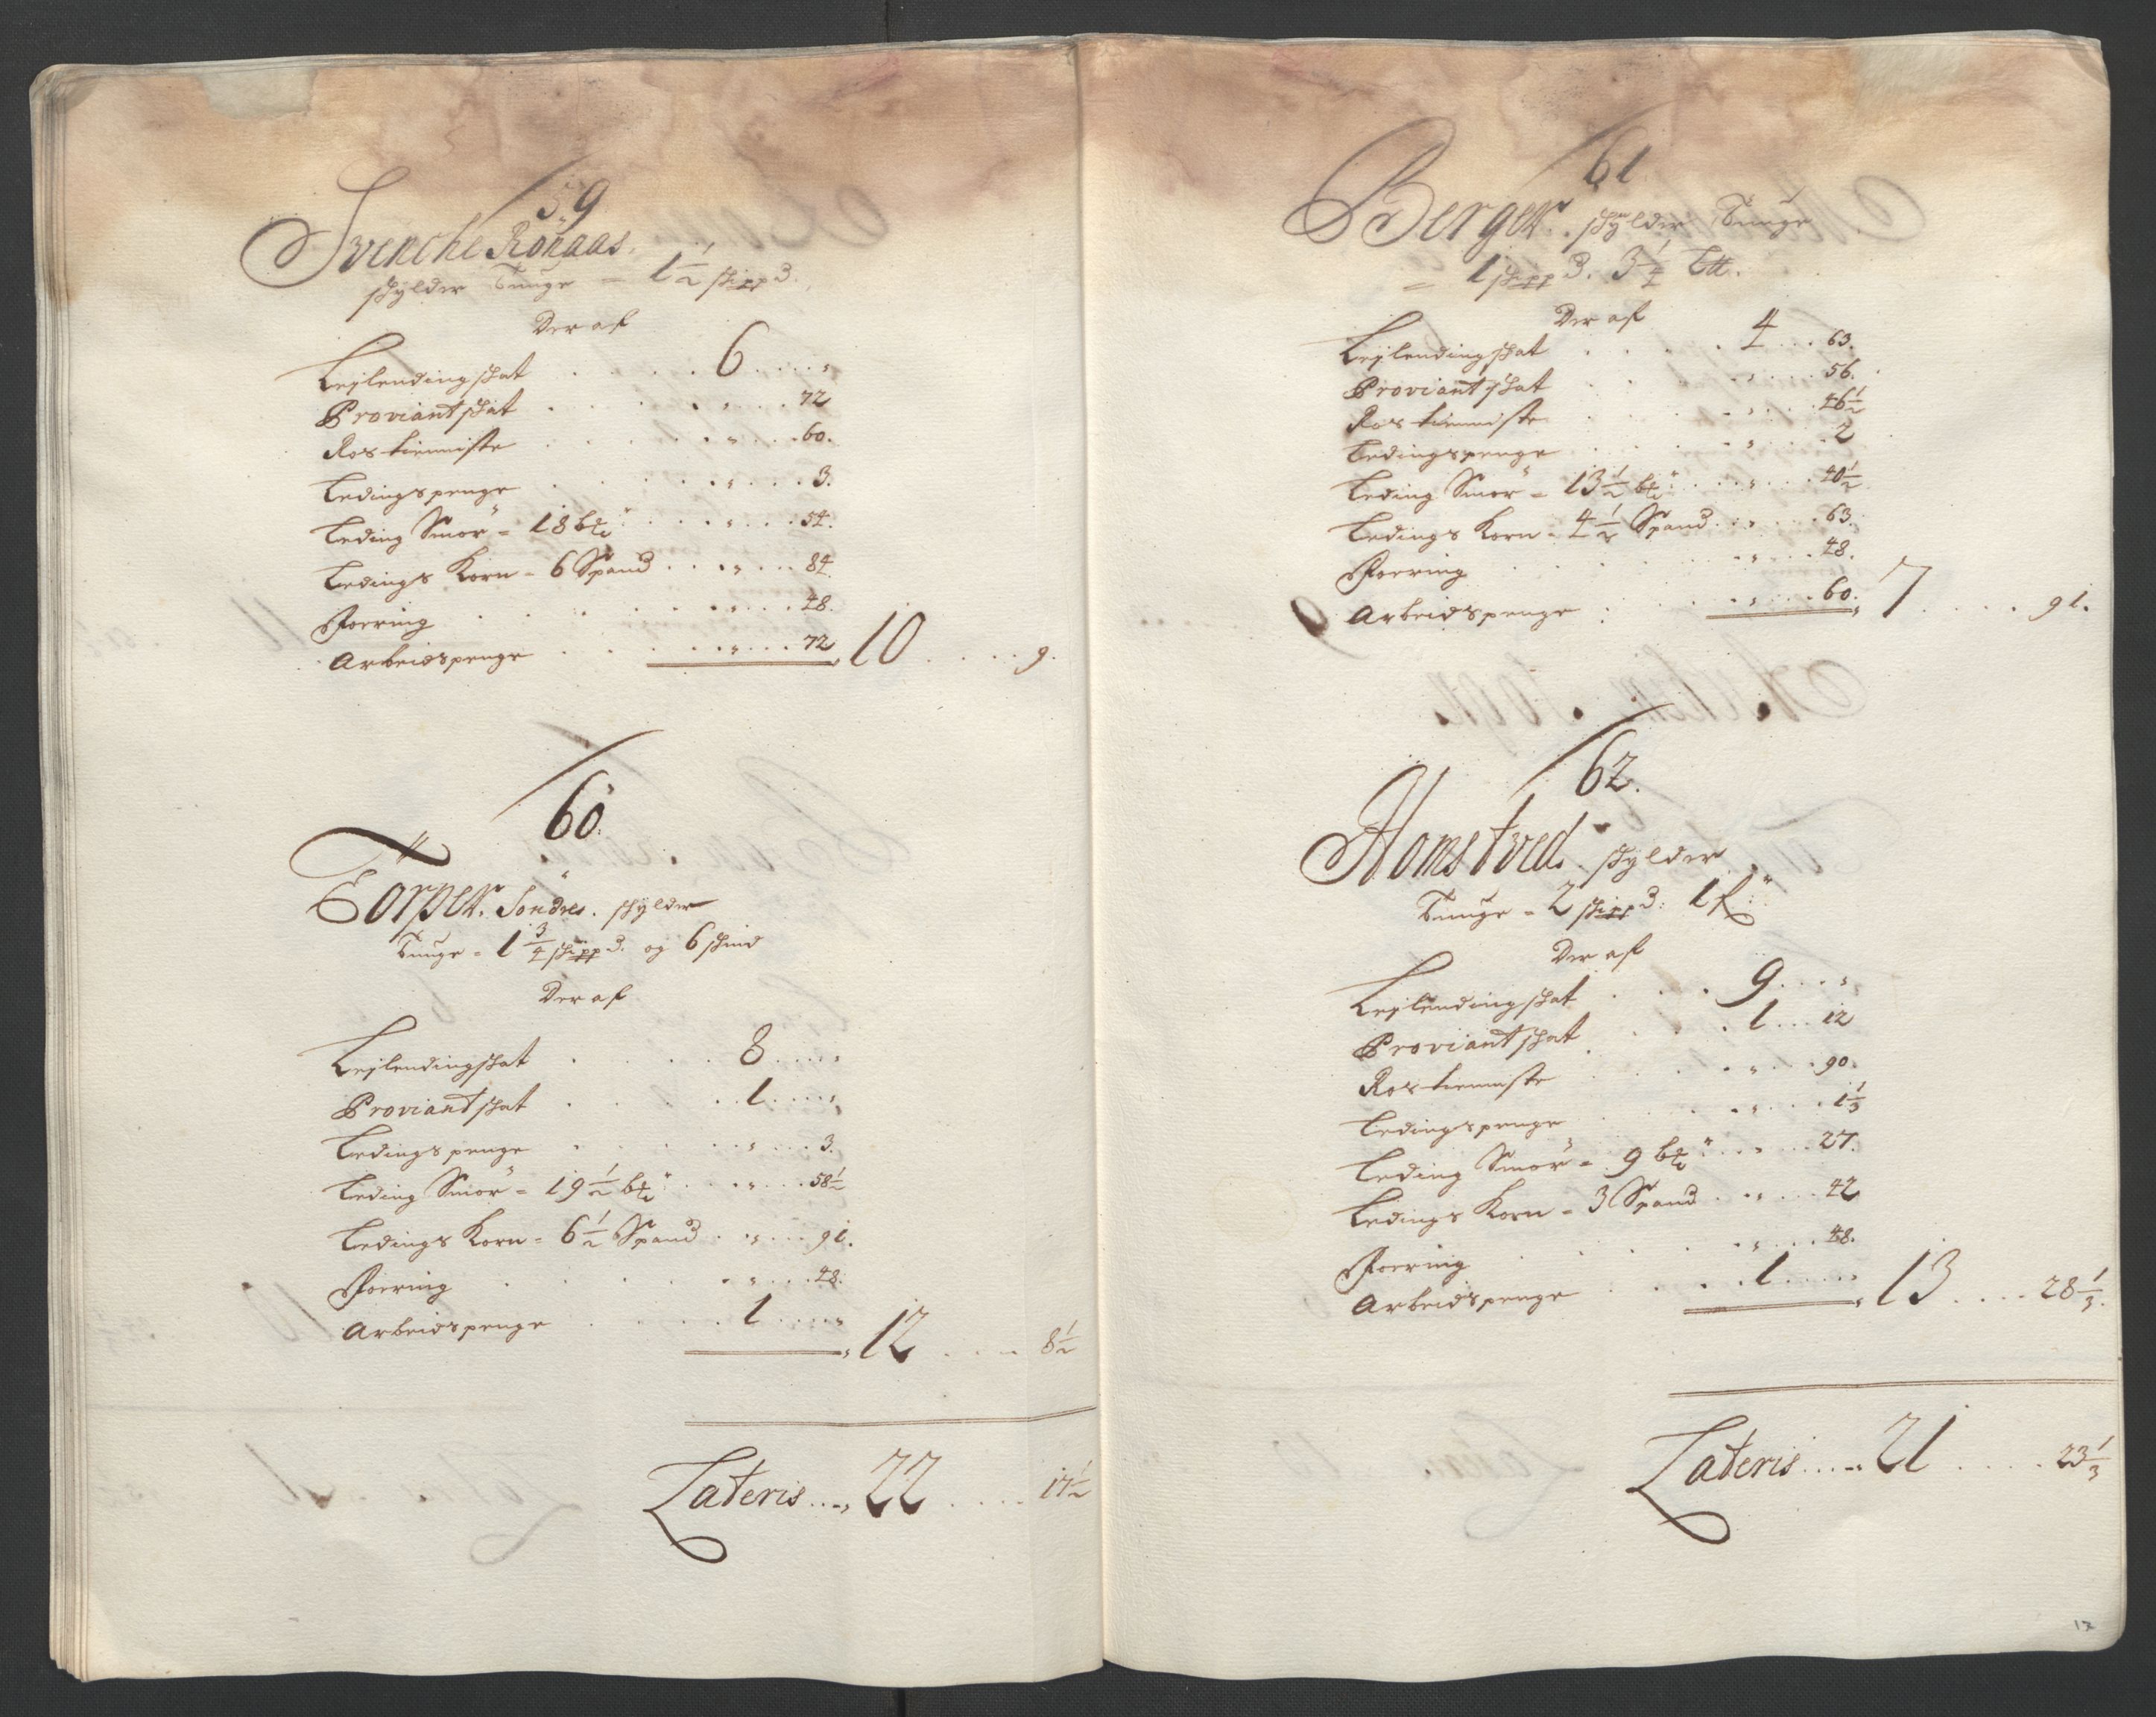 59
Svenche Rönaas.
schylder Tunge = 1½ schipp
Der af
Leylendingschat . . . . . 6 . . . . "
Proviantschat . . . . . . " . . . 72
Ros tienniste . . . . . " . . . 60.
Ledingspenge . . . . . . " . . . 3.
Leding Smör = 18 b . . . . " . . . 54.
Ledings Korn = 6 Spand . . . " . . . 84.
Foering . . . . . . " . . . 48.
Arbeidspenge . . . . . " . . . 72 " 10 . . . . 9.
60.
Torper. Söndres. schylder
Tunge = 1¾ schipp og 6 schind
Der af
Leylendingschat . . . . . 8 . . . . "
Proviantschat . . . . . 1 . . . . "
Ledingspenge . . . . . " . . . 3.
Leding Smör = 19½ b . . . " . . . 58½
Ledings Korn = 6½ Spand . . " . . . 91.
Foering . . . . . " . . . 48.
Arbeidspenge . . . . . 1 . . . . " " 12 . . . . 8½
Lateris . . . " 22 . . . . 17½
61
Berger. schylder Tunge
= 1 schipp 3¼ Lt.
Der af
Leylendingschat . . . . . 4 . . . 63.
Proviantschat . . . . . " . . . 56.
Ros tienniste . . . . . " . . . 46½
Ledingspenge . . . . . " . . . 2
Leding Smör = 13½ b . . . " . . . 40½
Ledings Korn = 4½ Spand . . " . . . 63.
Foering . . . . . " . . . 48.
Arbeidspenge . . . . . " . . . 60. " 7 . . . . 91.
62.
Homstved. schylder
Tunge = 2 schipp 1 f
Der af
Leylendingschat . . . . 9 . . . "
Proviantschat . . . . 1 . . . 12
Ros tienniste . . . . . " . . . 90.
Ledingspenge . . . . . " . . . 1⅓
Leding Smör = 9 b . . . " . . . 27.
Ledings Korn = 3 Spand . . " . . . 42
Foering . . . . . " . . . 48.
Arbeidspenge . . . . 1 . . . . " " 13 . . . . 28⅓.
Lateris . . . " 21 . . . . 23⅓
17